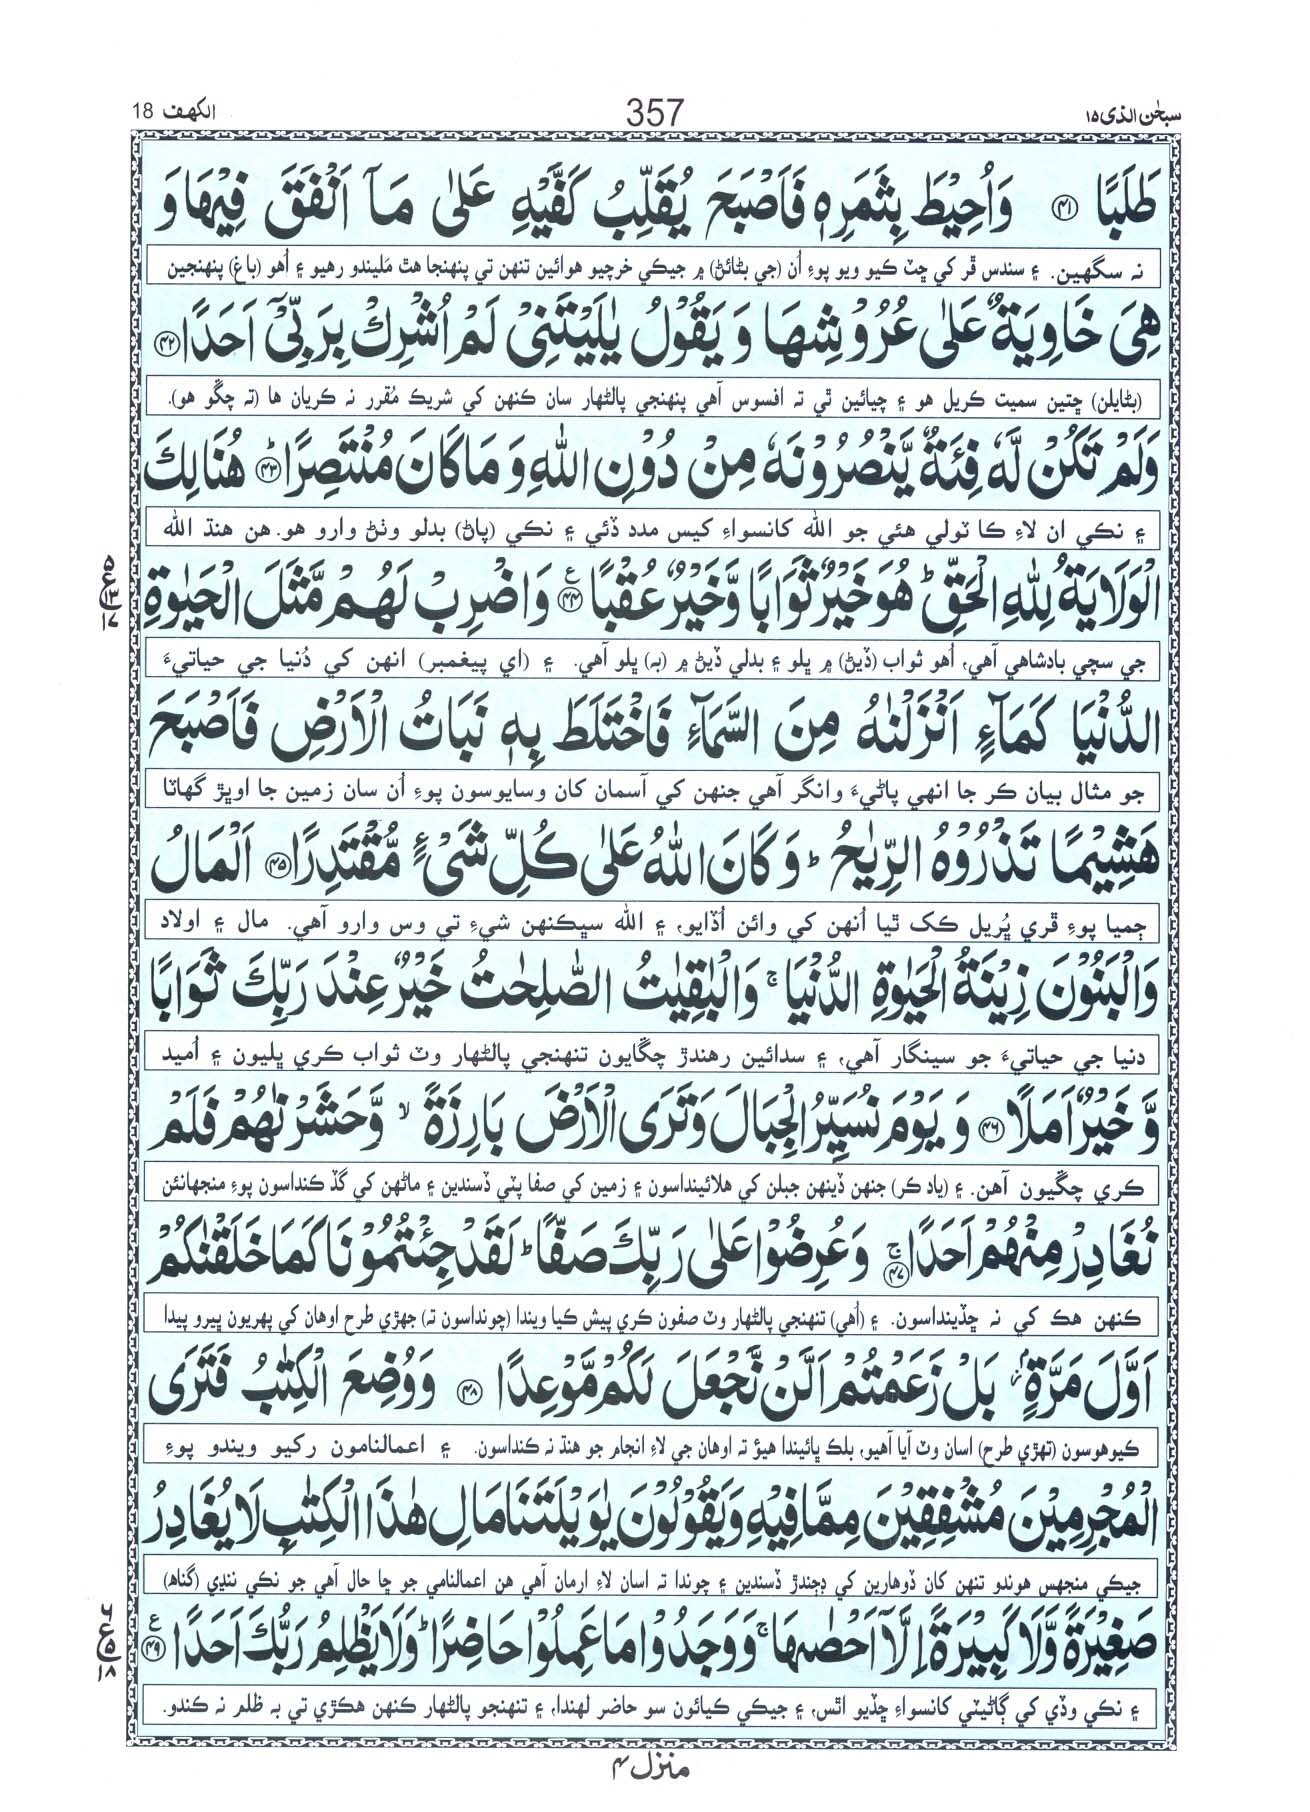 سبحٰن الذی ۱۵
357
الکهف 18
طَلَبًا ﴿۴۱﴾ وَاُحِیْطَ بِثَمَرِهٖ فَاَصْبَحَ یُقَلِّبُ كَفَّیْهِ عَلٰی مَاۤ اَنْفَقَ فِیْهَا وَ
نہ سگهين. ۽ سندس ڦر کي چٽ ڪيو ويو پوءِ اُن (جي بڻائڻ) ۾ جيڪي خرچيو هوائين تنهن تي پنهنجا هٿ مَليندو رهيو ۽ اُهو (باغ) پنهنجين
هِیَ خَاوِیَةٌ عَلٰی عُرُوْشِهَا وَ یَقُوْلُ یٰلَیْتَنِیْ لَمْ اُشْرِكْ بِرَبِّیْۤ اَحَدًا ﴿۴۲﴾
(بڻايلن) ڇتين سميت ڪريل هو ۽ چيائين ٿي تہ افسوس آهي پنهنجي پالڻهار سان ڪنهن کي شريڪ مُقرر نہ ڪريان ها (تہ چڱو هو).
وَلَمْ تَكُنْ لَّهٗ فِئَةٌ یَّنْصُرُوْنَهٗ مِنْ دُوْنِ اللّٰهِ وَ مَا كَانَ مُنْتَصِرًا ؕ﴿۴۳﴾ هُنَالِكَ
۽ نڪي ان لاءِ ڪا ٽولي هئي جو الله کانسواءِ کيس مدد ڏئي ۽ نڪي (پاڻ) بدلو وٺڻ وارو هو. هن هنڌ الله
الْوَلَایَةُ لِلّٰهِ الْحَقِّ ؕ هُوَ خَیْرٌ ثَوَابًا وَّخَیْرٌ عُقْبًا ﴿۴۴﴾ ع وَاضْرِبْ لَهُمْ مَّثَلَ الْحَیٰوةِ
جي سچي بادشاهي آهي، اُهو ثواب (ڏيڻ) ۾ ڀلو ۽ بدلي ڏيڻ ۾ (بہ) ڀلو آهي. ۽ (اي پيغمبر) انهن کي دُنيا جي حياتيءَ
الدُّنْیَا كَمَآءٍ اَنْزَلْنٰهُ مِنَ السَّمَآءِ فَاخْتَلَطَ بِهٖ نَبَاتُ الْاَرْضِ فَاَصْبَحَ
جو مثال بيان ڪر جا انهي پاڻيءَ وانگر آهي جنهن کي آسمان کان وسايوسون پوءِ اُن سان زمين جا اوپڙ گهاٽا
هَشِیْمًا تَذْرُوْهُ الرِّیٰحُ ؕ وَ كَانَ اللّٰهُ عَلٰی كُلِّ شَیْءٍ مُّقْتَدِرًا ﴿۴۵﴾ اَلْمَالُ
ڄميا پوءِ ڦري ڀُريل ڪک ٿيا اُنهن کي وائن اُڏايو، ۽ الله سڀڪنهن شيءِ تي وس وارو آهي. مال ۽ اولاد
وَالْبَنُوْنَ زِیْنَةُ الْحَیٰوةِ الدُّنْیَا ۚ وَالْبٰقِیٰتُ الصّٰلِحٰتُ خَیْرٌ عِنْدَ رَبِّكَ ثَوَابًا
دنيا جي حياتيءَ جو سينگار آهي، ۽ سدائين رهندڙ چڱايون تنهنجي پالڻهار وٽ ثواب ڪري ڀليون ۽ اُميد
وَّ خَیْرٌ اَمَلًا ﴿۴۶﴾ وَ یَوْمَ نُسَیِّرُ الْجِبَالَ وَ تَرَی الْاَرْضَ بَارِزَةً ۙ وَّحَشَرْنٰهُمْ فَلَمْ
ڪري چڱيون آهن. ۽ (ياد ڪر) جنهن ڏينهن جبلن کي هلائينداسون ۽ زمين کي صفا پٽي ڏسندين ۽ ماڻهن کي گڏ ڪنداسون پوءِ منجهانئن
نُغَادِرْ مِنْهُمْ اَحَدًا ۚ﴿۴۷﴾ وَ عُرِضُوْا عَلٰی رَبِّكَ صَفًّا ؕ لَقَدْ جِئْتُمُوْنَا كَمَا خَلَقْنٰكُمْ
ڪنهن هڪ کي نہ ڇڏينداسون. ۽ (اُهي) تنهنجي پالڻهار وٽ صفون ڪري پيش ڪيا ويندا (چونداسون تہ) جهڙي طرح اوهان کي پهريون ڀيرو پيدا
اَوَّلَ مَرَّةٍۭ ؗ بَلْ زَعَمْتُمْ اَلَّنْ نَّجْعَلَ لَكُمْ مَّوْعِدًا ﴿۴۸﴾ وَ وُضِعَ الْكِتٰبُ فَتَرَی
ڪيوهوسون (تهڙي طرح) اسان وٽ آيا آهيو، بلڪ ڀائيندا هيؤ تہ اوهان جي لاءِ انجام جو هنڌ نہ ڪنداسون. ۽ اعمالنامون رکيو ويندو پوءِ
الْمُجْرِمِیْنَ مُشْفِقِیْنَ مِمَّا فِیْهِ وَ یَقُوْلُوْنَ یٰوَیْلَتَنَا مَالِ هٰذَا الْكِتٰبِ لَا یُغَادِرُ
جيڪي منجهس هوندو تنهن کان ڏوهارين کي ڊڄندڙ ڏسندين ۽ چوندا تہ اسان لاءِ ارمان آهي هن اعمالنامي جو ڇا حال آهي جو نڪي ننڍي (گناهہ)
صَغِیْرَةً وَّلَا كَبِیْرَةً اِلَّاۤ اَحْصٰىهَا ۚ وَ وَجَدُوْا مَا عَمِلُوْا حَاضِرًا ؕ وَلَا یَظْلِمُ رَبُّكَ اَحَدًا ﴿۴۹﴾ ع
۽ نڪي وڏي کي ڳاڻيٽي کانسواءِ ڇڏيو اٿس، ۽ جيڪي ڪيائون سو حاضر لهندا، ۽ تنهنجو پالڻهار ڪنهن هڪڙي تي بہ ظلم نہ ڪندو.
منزل ۴